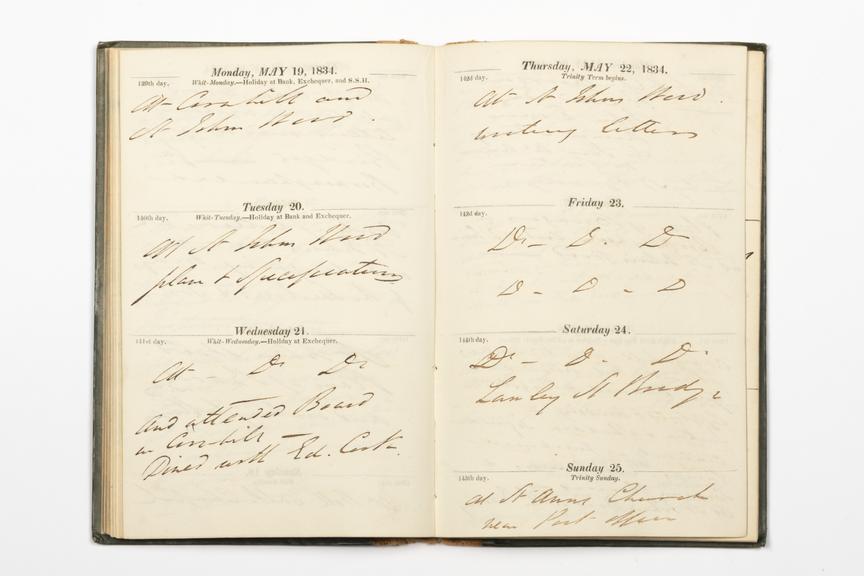 Monday, MAY 19, 1834.
139th day. Whit-Monday.—Holiday at Bank, Exchequer, and S.S.H.
At Cornhill and
St Johns Wood.
Tuesday 20.
140th day. Whit-Tuesday.—Holiday at Bank and Exchequer.
At St Johns Wood
plan & Specifications
Wednesday 21.
141st day. Whit-Wednesday.—Holiday at Exchequer.
At - Do Do
And attended Board
in Cornhill -
Dined with Ed. Cook.
Thursday, MAY 22, 1834.
142d day. Trinity Term begins.
At St Johns Wood.
writing letters
Friday 23.
143d day.
Do - D. D
D - D - D
Saturday 24.
144th day.
Do - D. D.
St
Sunday 25.
145th day. Trinity Sunday.
at St Anns Church
near Post office